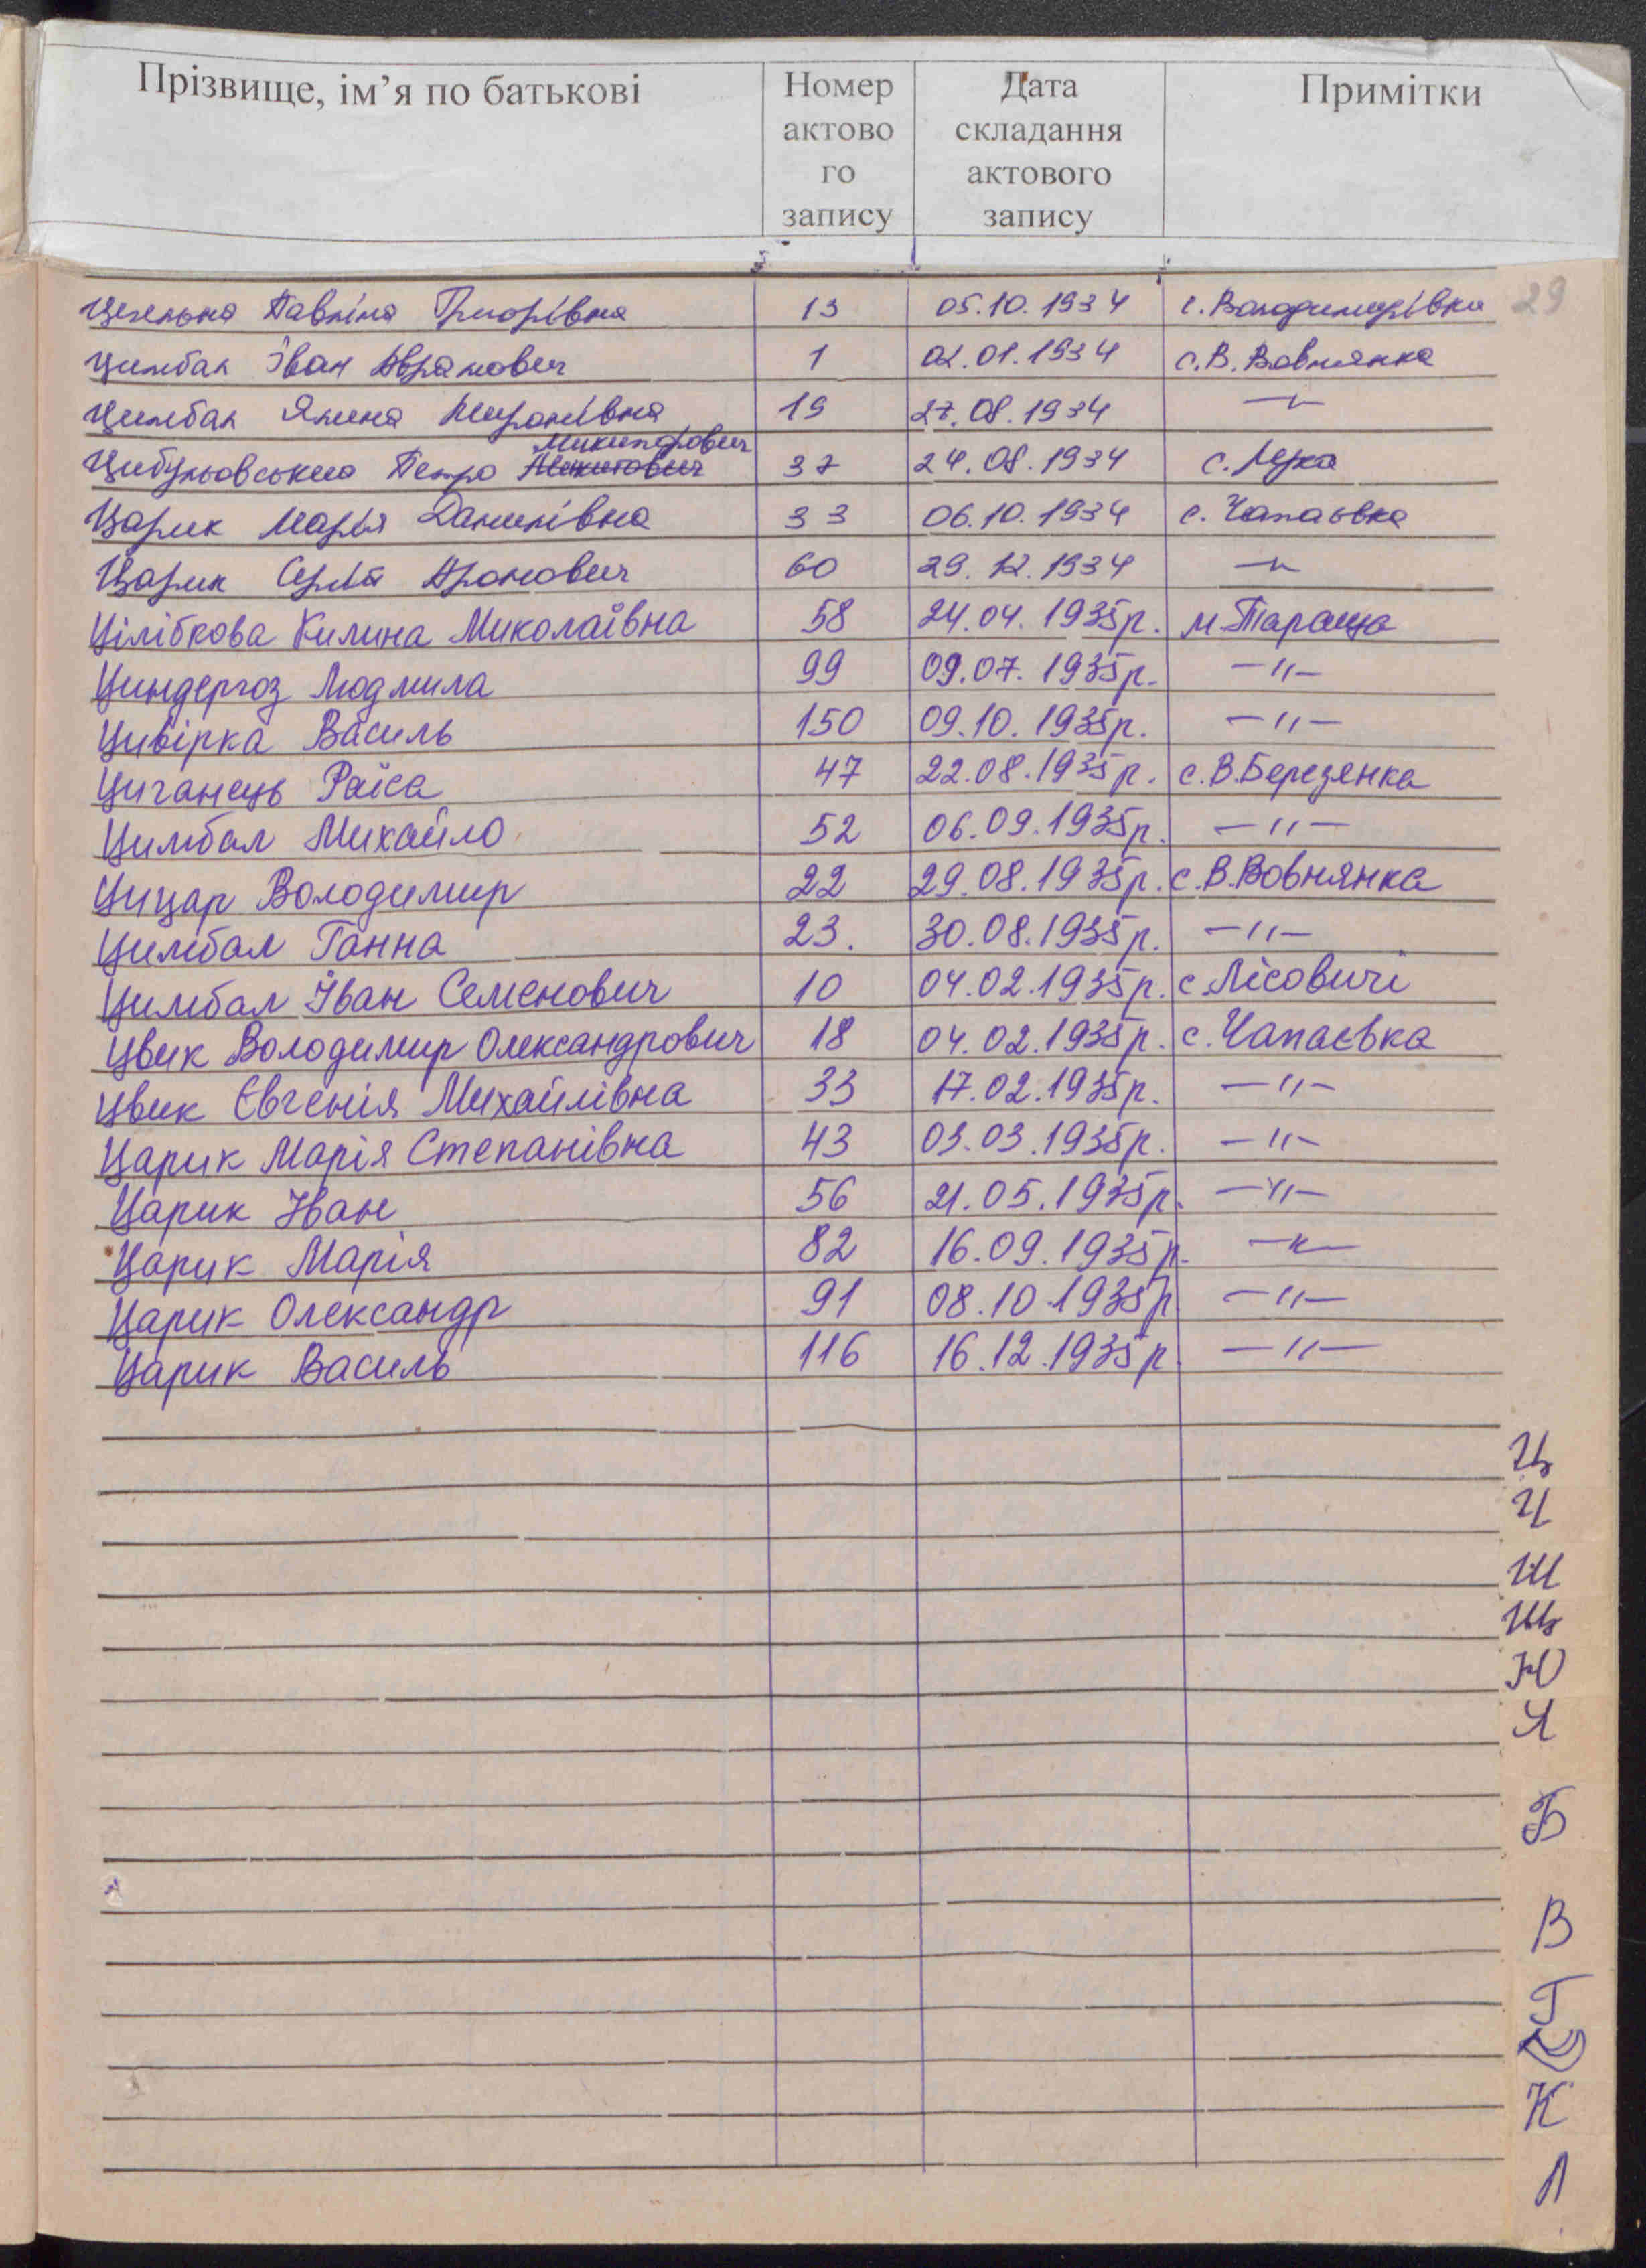 Прізвище, ім’я по батькові Номер актово го запису Дата складання актового запису Примітки
29
Павліна Григорівна 13 05.10.1934 с. Володимирівка
Цимбал Іван Аврамович 1 02.01.1934 с. В. Вовнянка
Цимбал Яніна Миронівна 19 27.08.1934 —"—
Микипорович
Цибульовський Петро Микитович 37 24.08.1934 с. Лука
Царик Марія Данилівна 33 06.10.1934 с. Чапаєвка
Царик Сергій 60 29.12.1934 —"—
Цілібкова Килина Миколаївна 58 24.04.1935р. м. Тараща
Циндергоз Людмила 99 09.07.1935р. —"—
Цивірка Василь 150 09.10.1935р. —"—
Циганець Раїса 47 22.08.1935р. с. В. Березянка
Цимбал Михайло 52 06.09.1935р. —"—
Цицар Володимир 22 29.08.1935р. с. В. Вовнянка
Цимбал Ганна 23. 30.08.1935р. —"—
Цимбал Іван Семенович 10 04.02.1935р. с. Лісовичі
Цвик Володимир Олександрович 18 04.02.1935р. с. Чапаєвка
Цвик Євгенія Михайлівна 33 17.02.1935р. —"—
Царик Марія Степанівна 43 03.03.1935р. —"—
Царик Іван 56 21.05.1935р. —"—
Царик Марія 82 16.09.1935р. —"—
Царик Олександр 91 08.10.1935р —"—
Царик Василь 116 16.12.1935р. —"—
Ц
Ч
Ш
Щ
Ю
Я
Б
В
Г
К
Л